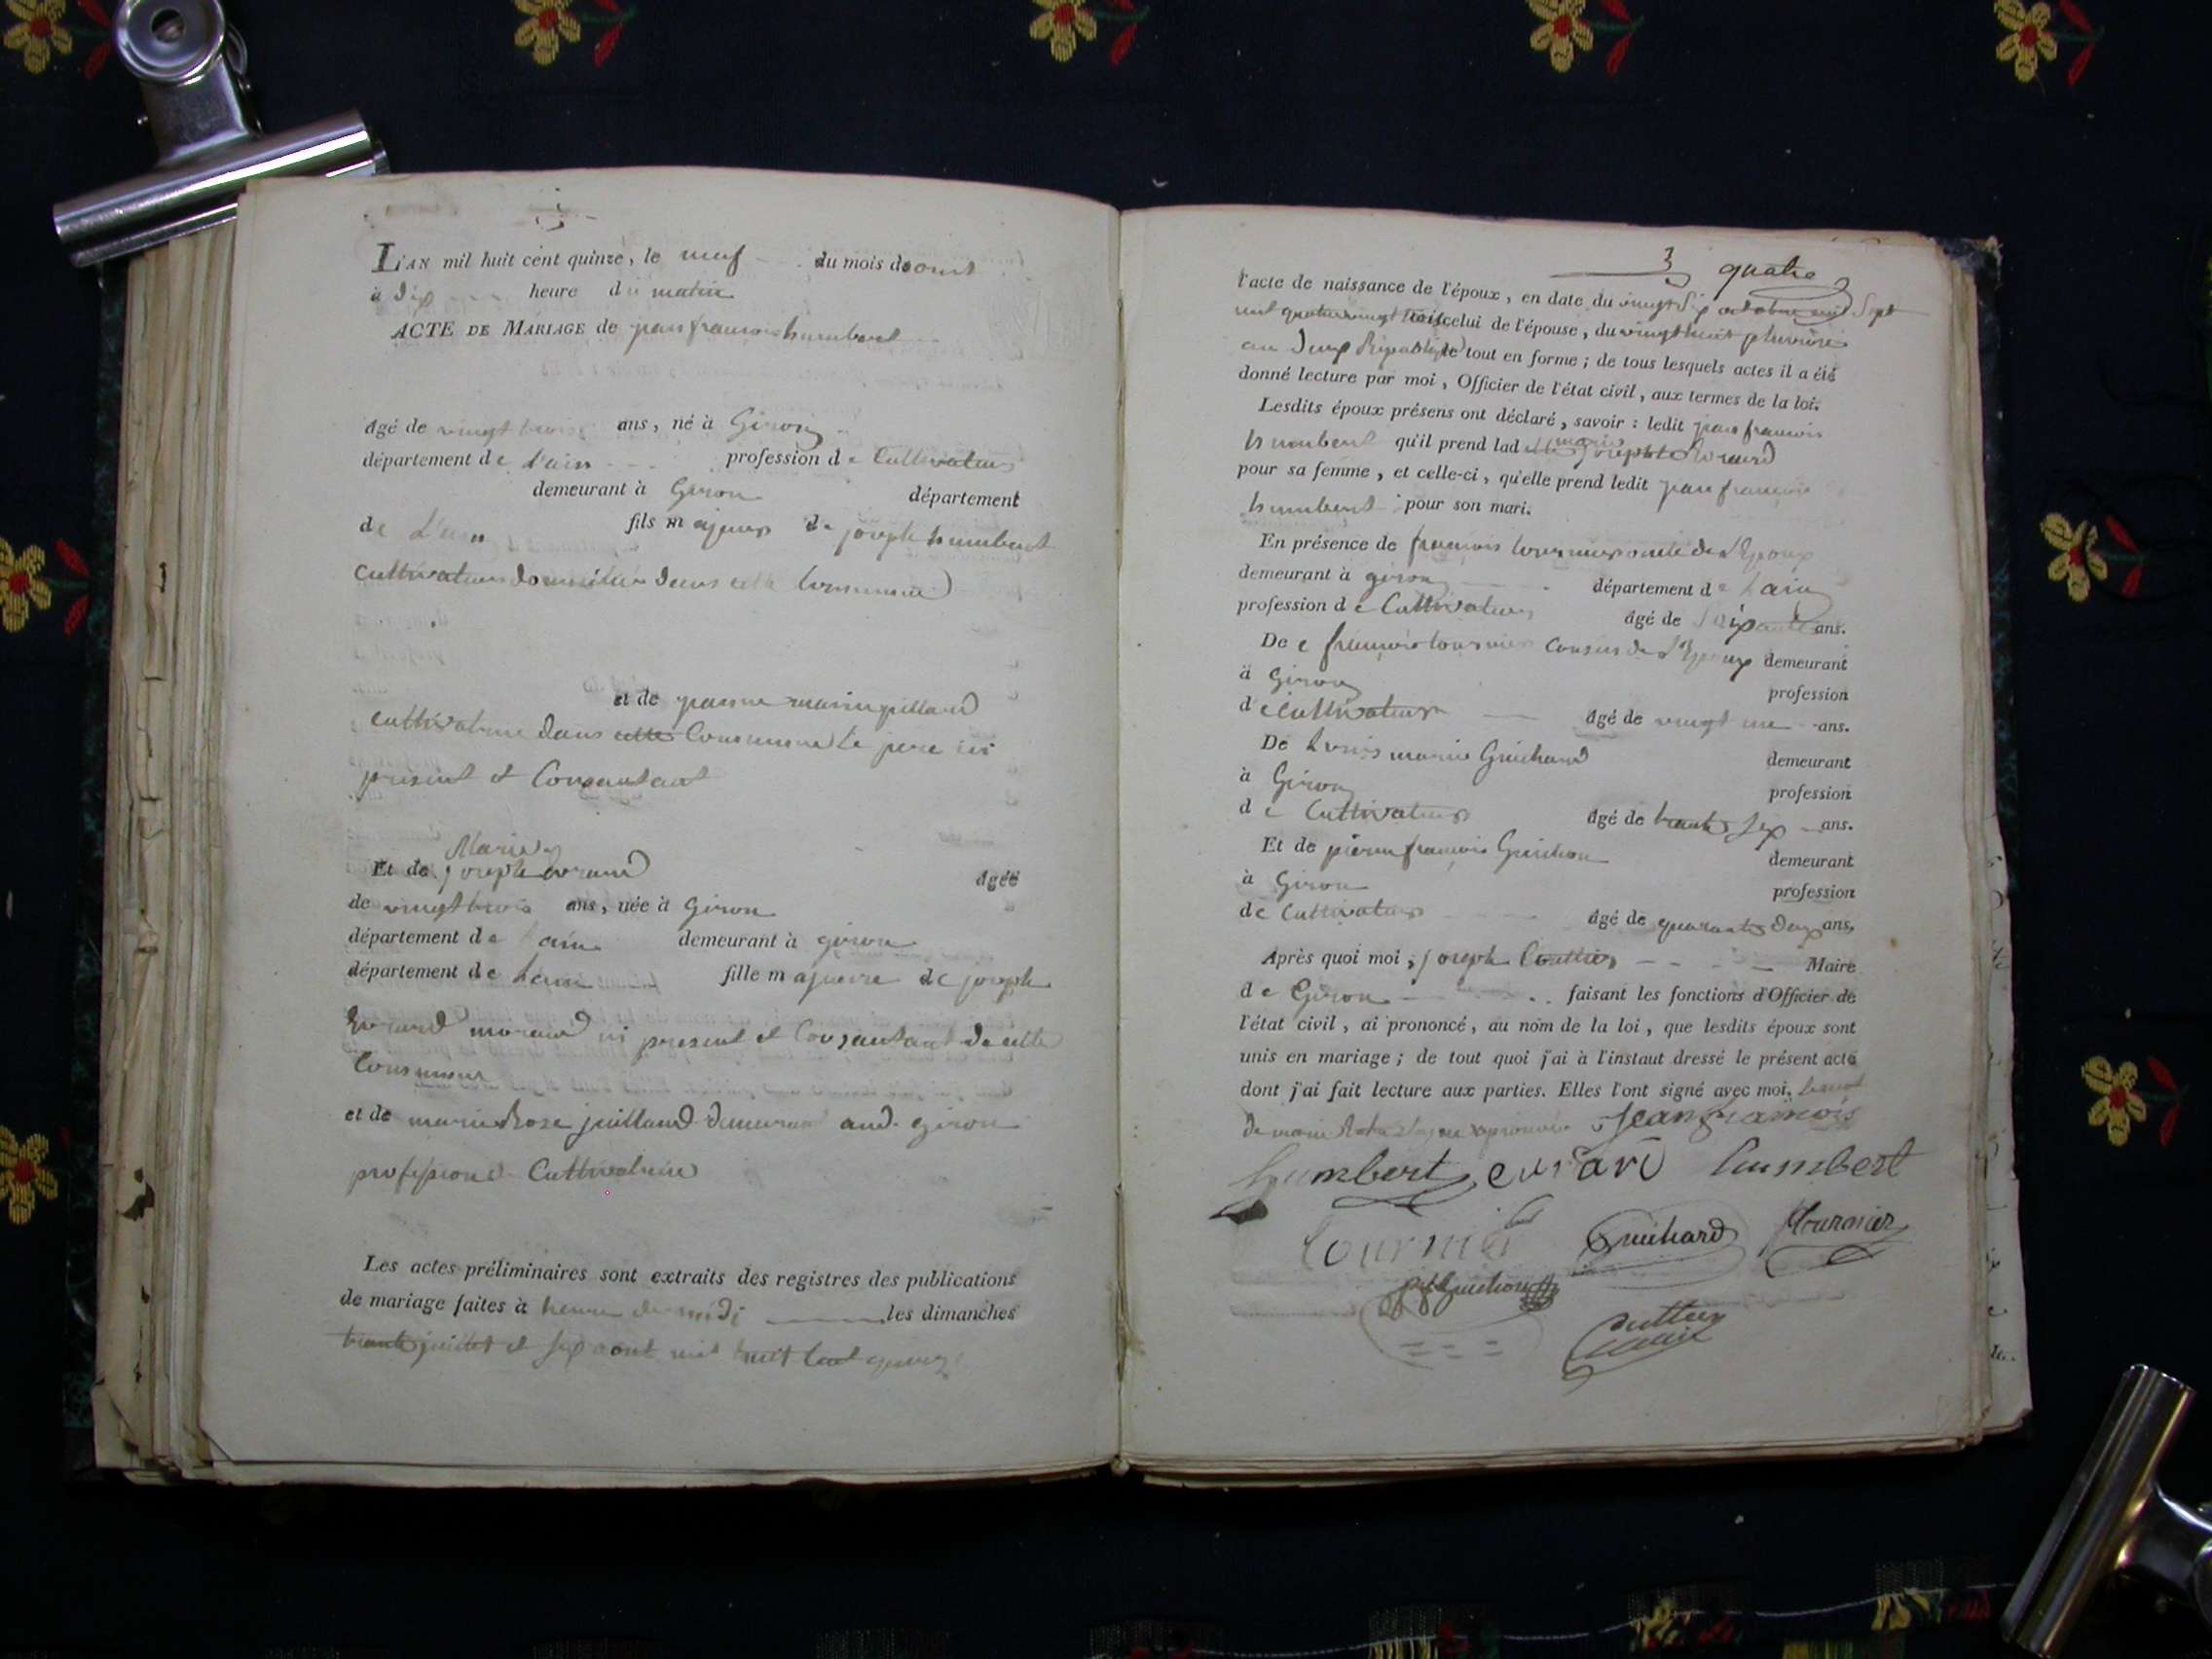 L'AN mil huit cent quinze, le neuf du mois daout
à dix heure du matin
ACTE DE MARIAGE de jean francois humbert
âgé de vingt trois ans, né à Giron
département de L'ain profession de Cultivateur
demeurant à Giron département
de L'ain fils majeur de joseph humbert
Cultivateur domicilier dans cette Commune
et de jeanne marie juilland
cultivatrice dans cette Commune le pere ici
present et Consentant
Marie
Et de joseph evrard âgée
de vingt trois ans, née à Giron
département de Lain demeurant à giron
département de Lain fille majeure de joseph
Evrard morand ici present et Consantant de cette
Commune
et de marie Rose juilland demeurant aud. giron
profession Cultivatrice
Les actes préliminaires sont extraits des registres des publications
de mariage faites à heure de midi les dimanches
trante juillet et six aout mil huit cent quinze
3 quatre
l'acte de naissance de l'époux, en date du vingt six octobre mil sept
cent quatrevingt celui de l'épouse, du vingt huit pluviose
an Republique le tout en forme ; de tous lesquels actes il a été
donné lecture par moi, Officier de l'état civil, aux termes de la loi.
Lesdits époux présens ont déclaré, savoir : ledit jean francois
humbert qu'il prend ladette marie josephte Evrard
pour sa femme, et celle-ci, qu'elle prend ledit jean francois
humbert pour son mari.
En présence de francois tournier oncle de l'Epoux
demeurant à giron département de Lain
profession de Cultivateur âgé de soixante ans.
De francois tournier Cousin de l'Epoux demeurant
à Giron profession
de Cultivateur âgé de vingt ans.
De Louis marie Guichard demeurant
à Giron profession
de Cultivateur âgé de trante six ans.
Et de pierre francois Guichon demeurant
à Giron profession
de Cultivateur âgé de quarante deux ans,
Après quoi moi, joseph Couttier Maire
de Giron faisant les fonctions d'Officier de
l'état civil, ai prononcé, au nom de la loi, que lesdits époux sont
unis en mariage ; de tout quoi j'ai à l'instant dressé le présent acte
dont j'ai fait lecture aux parties. Elles l'ont signé avec moi,
de marie jean francois
humbert evrard humbert
tournier Guichard tournier
Guichon
Outtier
maire